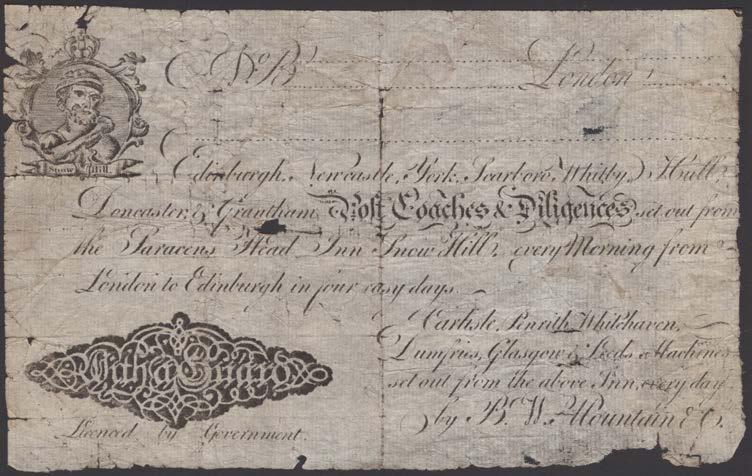 No B
London
Snow Hill
Edinburgh, Newcastle, York, Scarboro, Whitby, Hull,
Doncaster, & Grantham, Post Coaches & Diligences, set out from
the Saracens Head Inn Snow Hill, every Morning from
London to Edinburgh in four easy days.
Carlisle, Penrith, Whitehaven,
Dumfries, Glasgow & Leeds Machines
set out from the above Inn, every day
by W. Mountain & Co.
With a Guard
Licenced by Government.